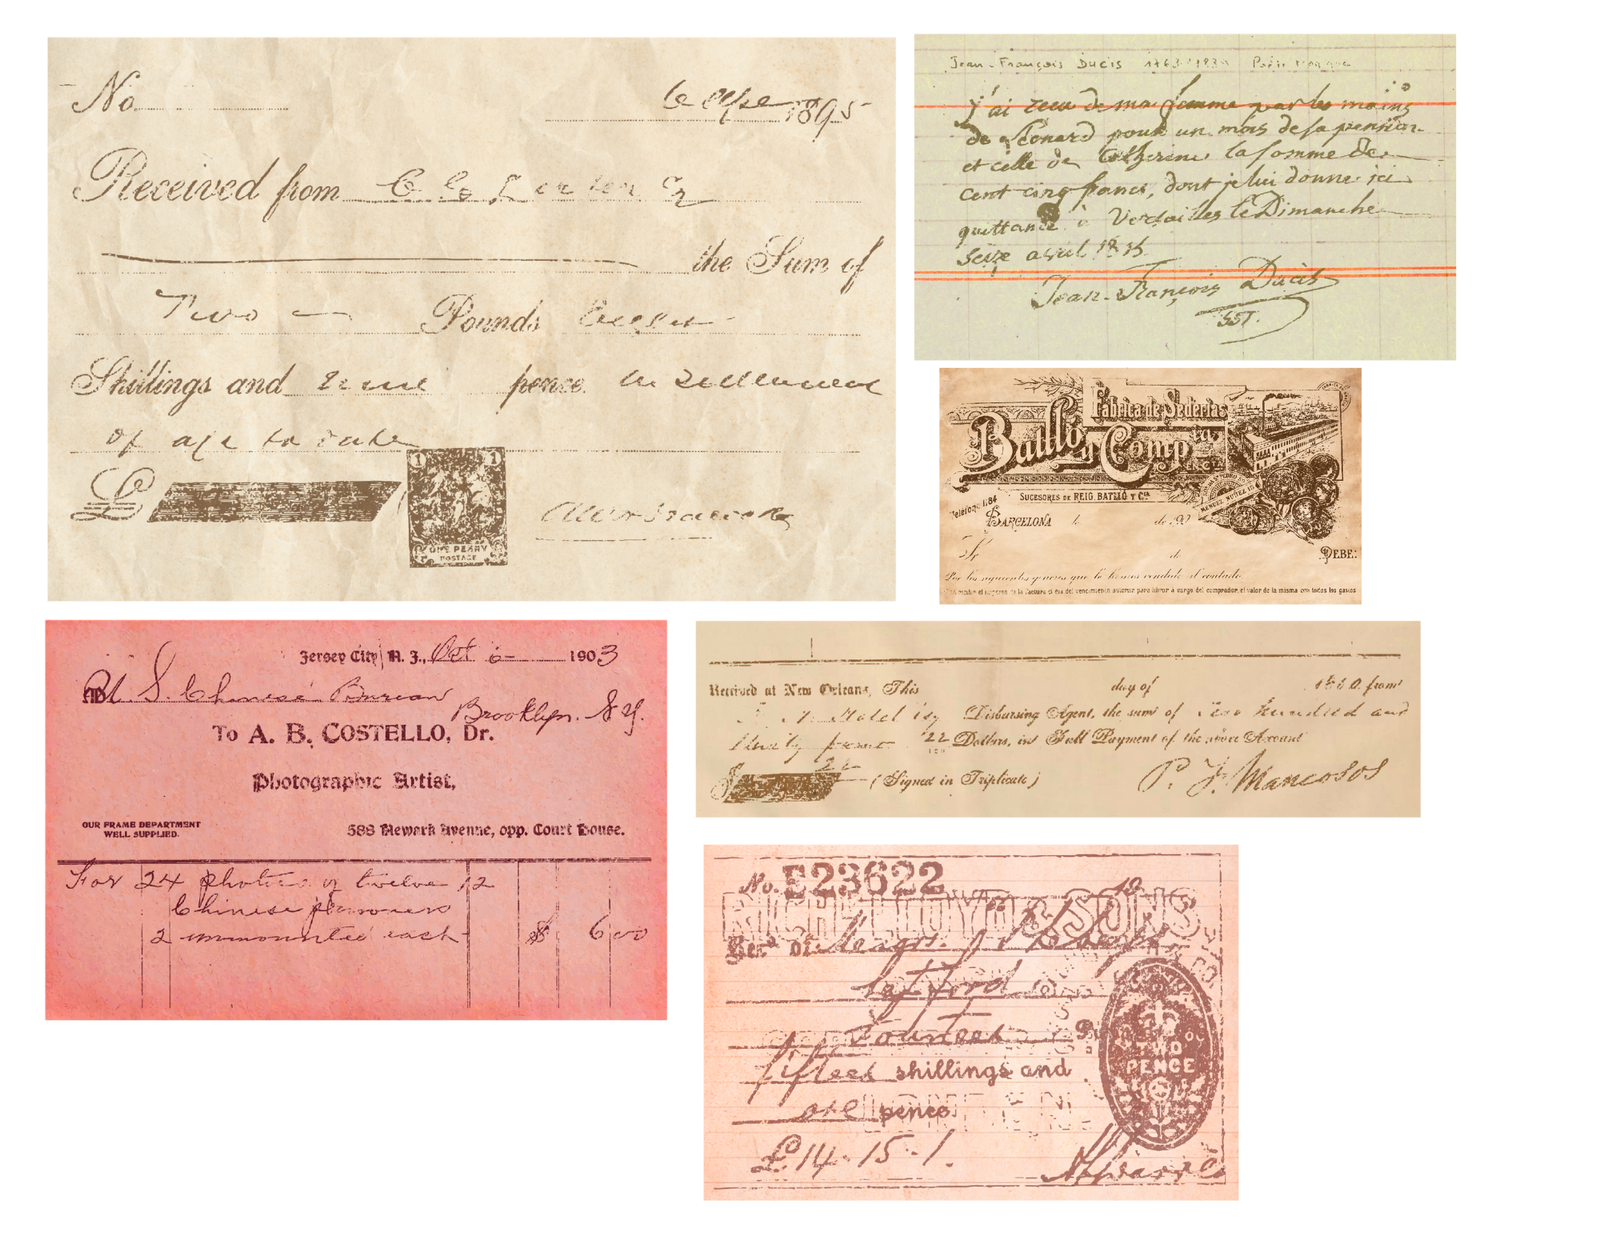 No
1895
Received from
the Sum of
Two Pounds
Shillings and pence in Settlement
of a/c to date
£
1 1
ONE PENNY
POSTAGE
Jean-François Ducis
j'ai recu de ma femme par les mains
de Léonard pour un mois de sa pension
et celle de Catherine la somme de
cent cinq francs, dont je lui donne ici
quittance à Versailles le Dimanche
Seize avril
Jean-François Ducis
Fábrica de Sederías
Batlló y Compta
SUCESORES DE REIG, BATLLÓ Y Cia
Teléfono 1184
BARCELONA de 190
Sr. de DEBE:
Por los siguientes géneros que le hemos vendido al contado
Jersey City, N. J., Oct 6 1903
U S. Chinese Bureau
Brooklyn. N Y.
To A. B. COSTELLO, Dr.
Photographic Artist,
OUR FRAME DEPARTMENT
WELL SUPPLIED.
588 Newark Avenue, opp. Court House.
For 24 photos of twelve 12
Chinese prisoners
2 unmounted each $ 6 00
Received at New Orleans, This day of from
Disbursing Agent, the sum of Two hundred and
thirty four 22 Dollars, in Full Payment of the above Account
$ 22 (Signed in Triplicate)
P. F. Mancosos
No. E23622
RICHD LLOYD & SONS.
Recd of Messrs.
fourteen
fifteen shillings and
one pence
TWO
PENCE
£14-15-1.